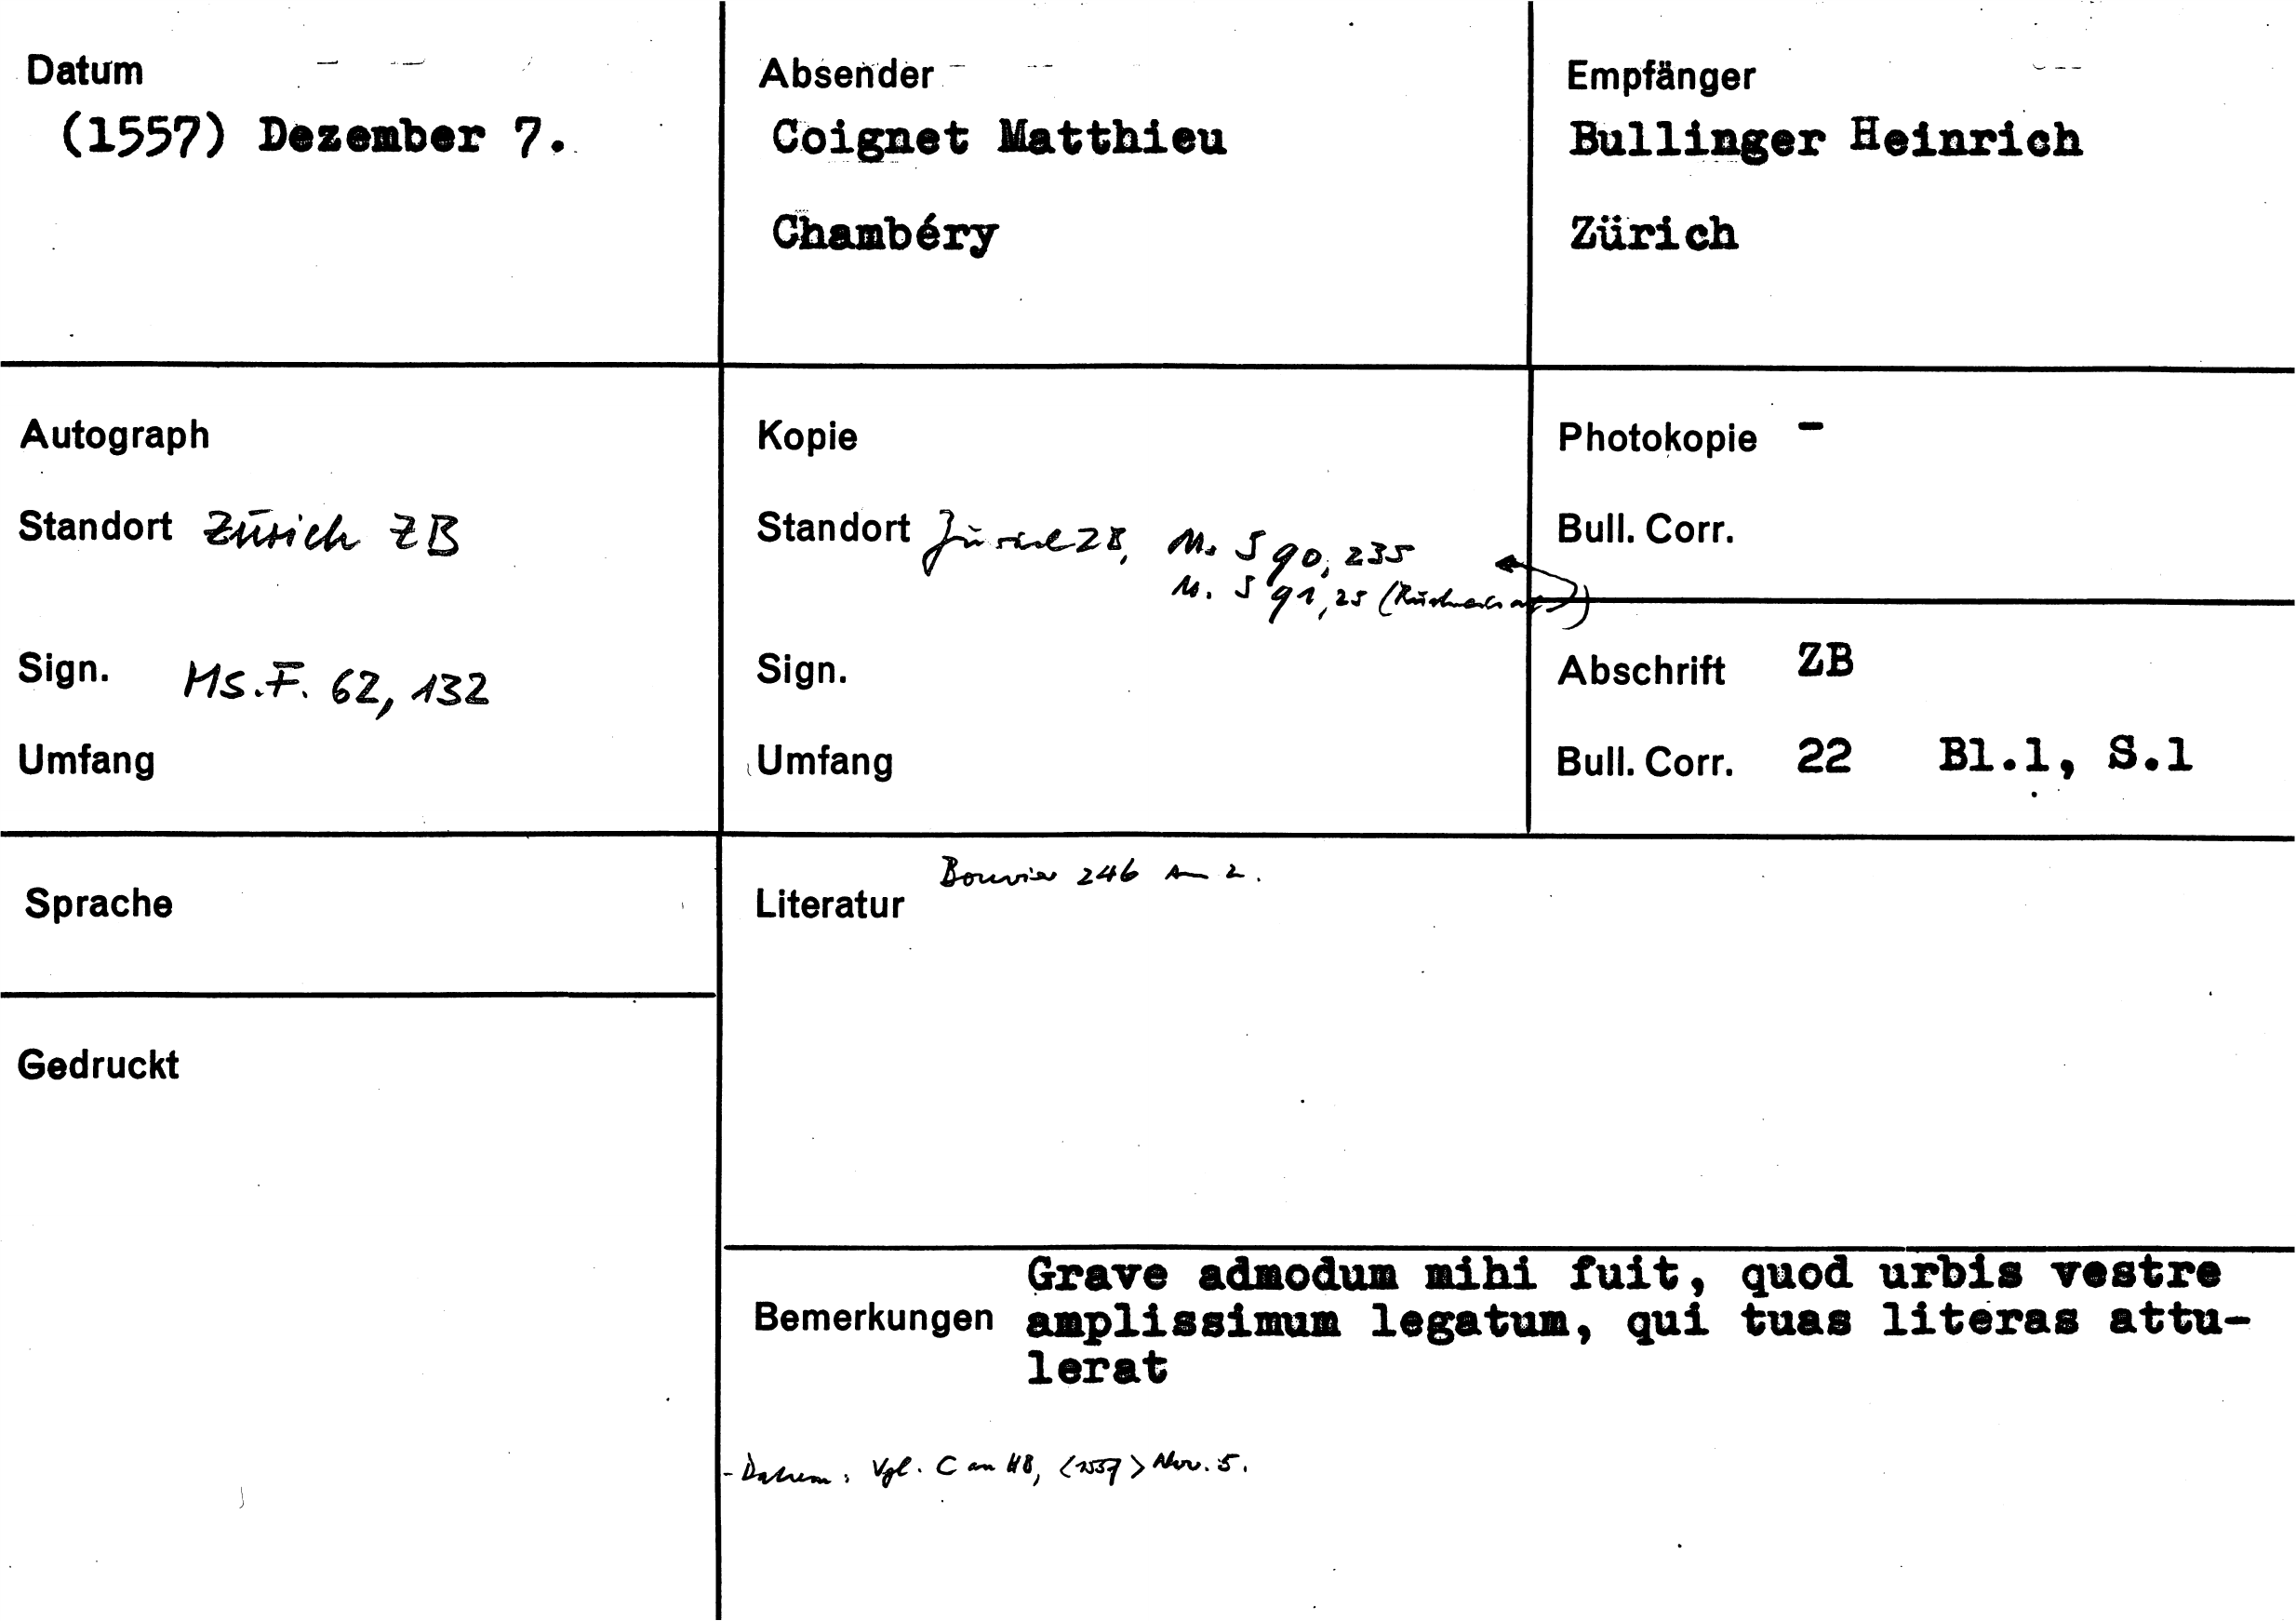 Datum
(1557) Dezember 7.
Absender
Coignet Matthieu
Chambéry
Empfänger
Bullinger Heinrich
Zürich
Autograph
Standort Zürich ZB
Sign. Ms. F. 62, 132
Umfang
Kopie
Standort Zürich ZB, Ms S 90, 235
Ms. S 91, 25
Sign.
Umfang
Photokopie -
Bull. Corr.
Abschrift ZB
Bull. Corr. 22 Bl.1, S.1
Sprache
Gedruckt
Literatur
Bouvier 246 2.
Bemerkungen
Grave admodum mihi fuit, quod urbis vestre
amplissimum legatum, qui tuas literas attu-
lerat
- Datum: Vgl. C an HB, <1557> Nov. 5.